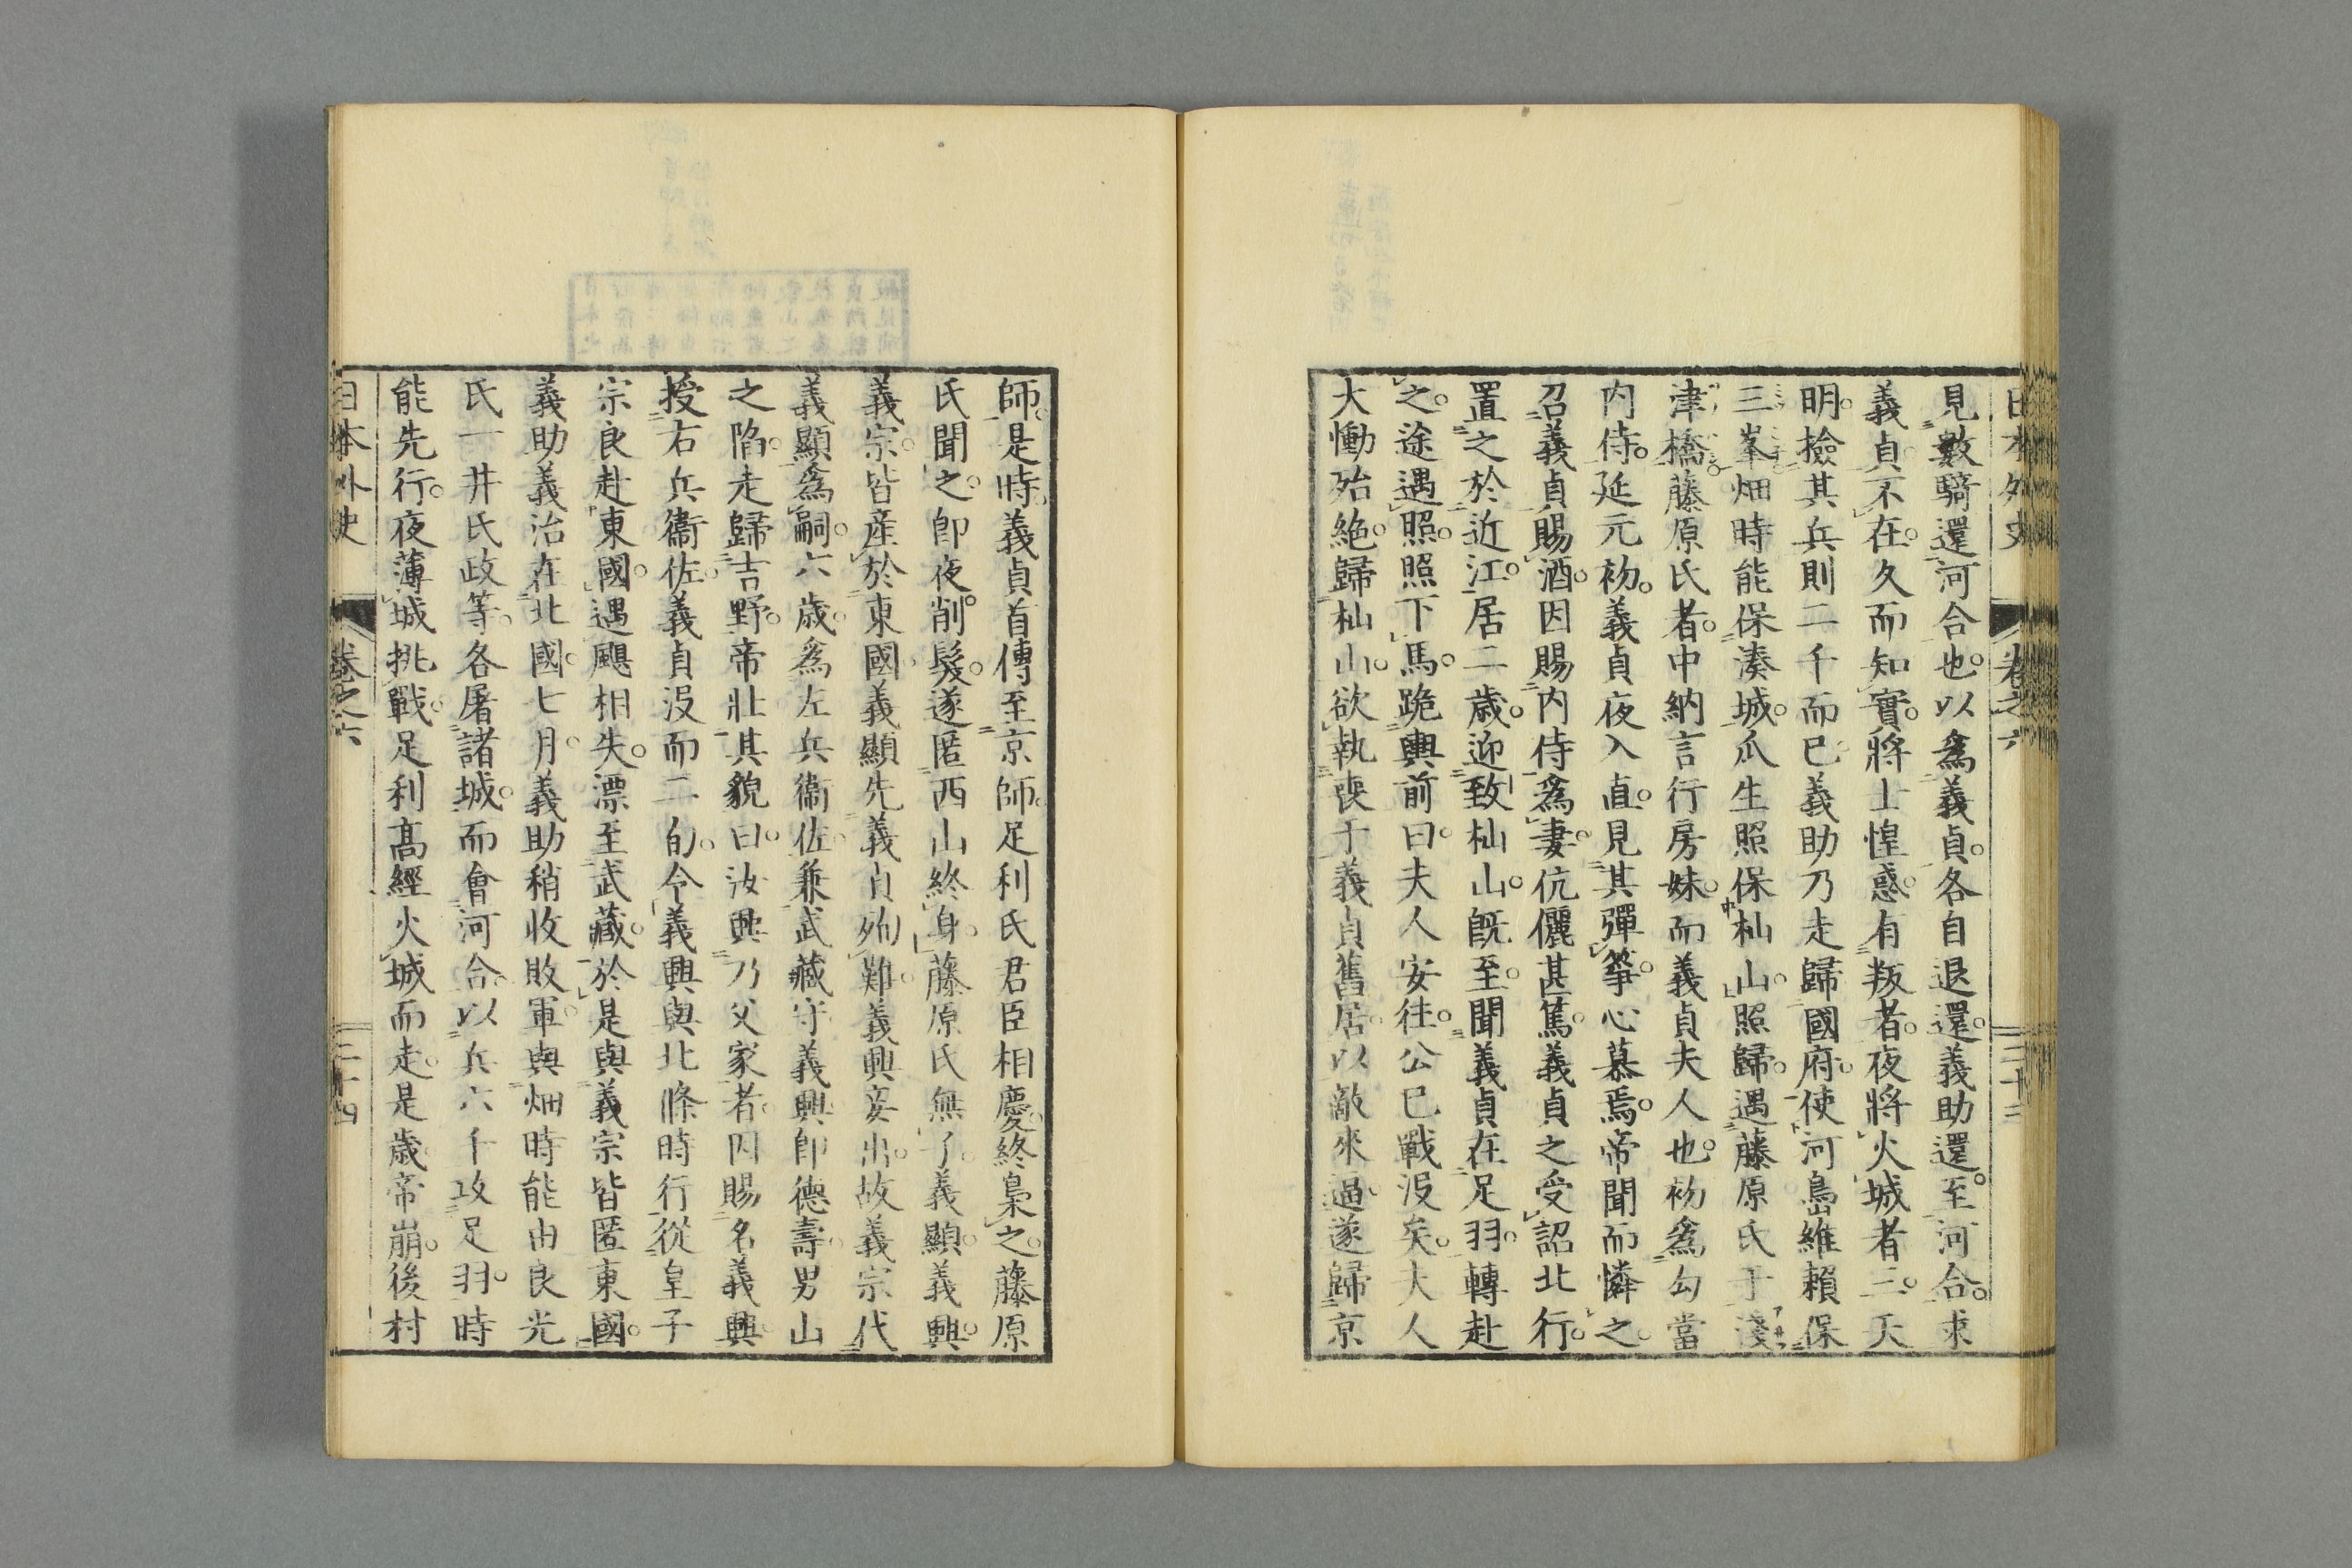 日本外史　卷之六　二十三
見數騎還河合也。以爲義貞。各自退還。義助還至河合。求
義貞不在。久而知實。將士惶惑。有叛者。夜將火城者三。天
明。撿其兵則二千而已。義助乃走歸國府。使河島維頼保
三峯。畑時能保湊城。爪生照保杣山。照歸。遇藤原氏于淺
津橋。藤原氏者。中納言行房妹。而義貞夫人也。初爲勾當
内侍。延元初。義貞夜入直。見其彈箏。心慕焉。帝聞而憐之。
召義貞賜酒。因賜内侍爲妻。伉儷甚篤。義貞之受詔北行。
置之於近江。居二歳。迎致杣山。既至。聞義貞在足羽。轉赴
之。途遇照。照下馬。跪輿前曰。夫人安往。公已戰沒矣。夫人
大慟殆絶。歸杣山。欲執喪于義貞舊居。以敵來逼。遂歸京
師。是時。義貞首傳至京師。足利氏君臣相慶。終梟之。藤原
氏聞之。卽夜削髮。遂匿西山終身。藤原氏無子。義顯。義興。
義宗。皆産於東國。義顯先義貞殉難。義興妾出。故義宗代
義顯爲嗣。六歳。爲左兵衞佐。兼武藏守。義興卽德壽。男山
之陷。走歸吉野。帝壯其貌曰。汝興乃父家者。因賜名義興。
授右兵衞佐。義貞沒而二旬。令義興與北條時行從皇子
宗良赴東國。遇颶相失。漂至武藏。於是與義宗皆匿東國。
義助義治在北國。七月。義助稍收敗軍。與畑時能由良光
氏一井氏政等。各屠諸城。而會河合。以兵六千攻足羽。時
能先行。夜薄城挑戰。足利高經火城而走。是歳帝崩。後村
日本外史　卷之六　二十四